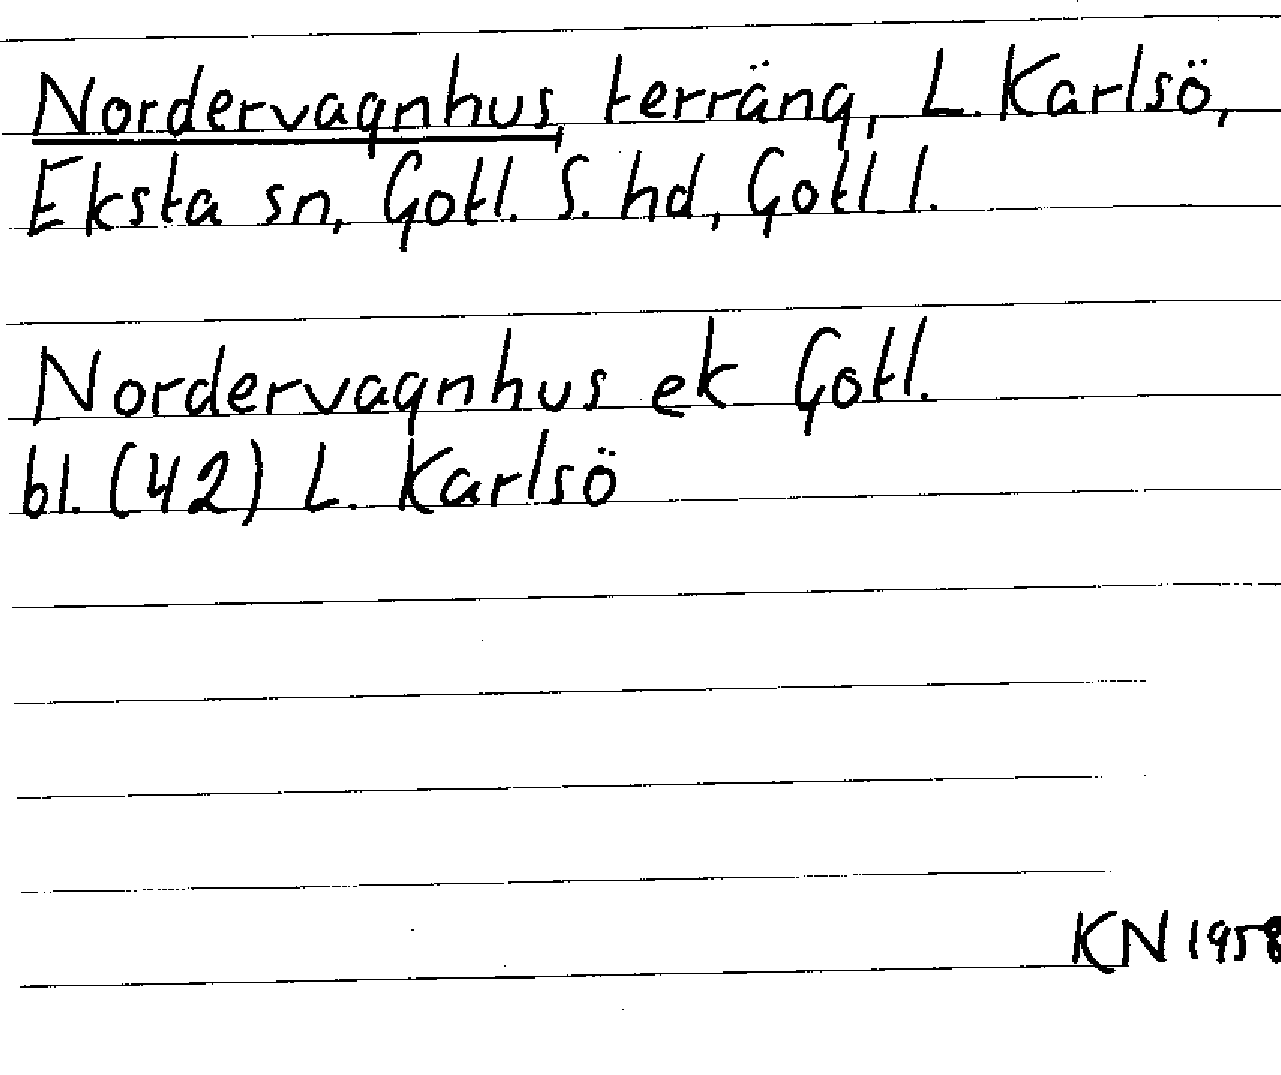 Nordervagnhus, terräng, L. Karlsö,
Eksta sn, Gotl. S. hd, Gotl l.
Nordervagnhus ek Gotl.
bl. (42) L. Karlsö
KN 1958